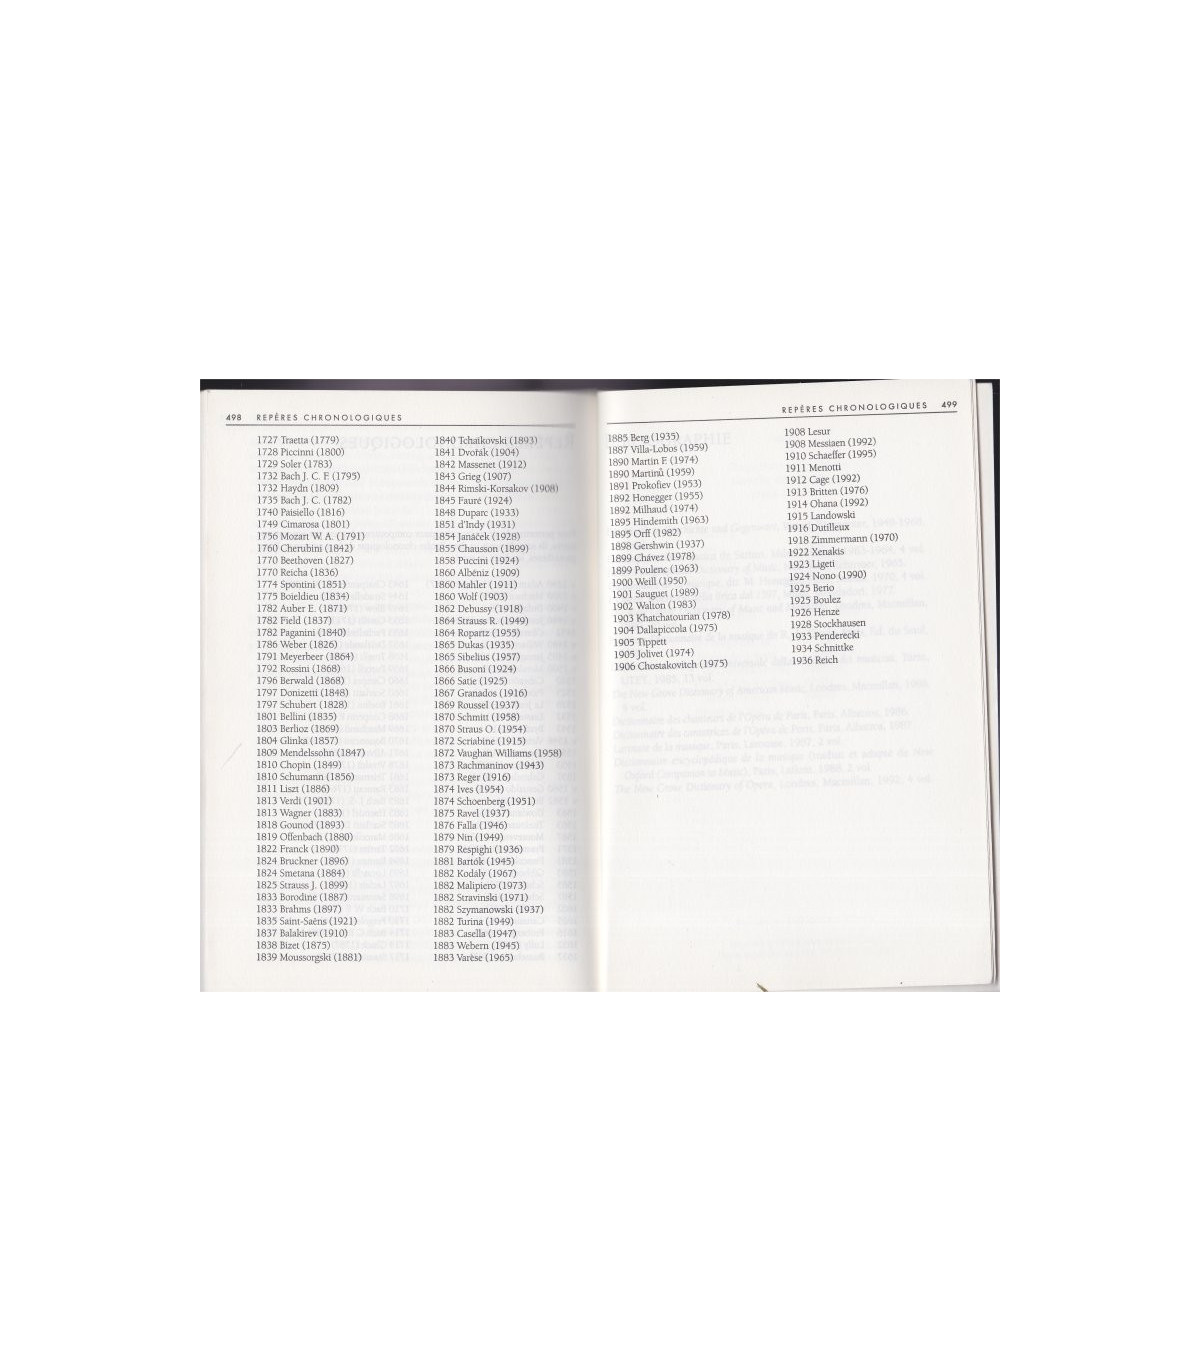 498 REPÈRES CHRONOLOGIQUES
1727 Traetta (1779)
1728 Piccinni (1800)
1729 Soler (1783)
1732 Bach J. C. F. (1795)
1732 Haydn (1809)
1735 Bach J. C. (1782)
1740 Paisiello (1816)
1749 Cimarosa (1801)
1756 Mozart W. A. (1791)
1760 Cherubini (1842)
1770 Beethoven (1827)
1770 Reicha (1836)
1774 Spontini (1851)
1775 Boieldieu (1834)
1782 Auber E. (1871)
1782 Field (1837)
1782 Paganini (1840)
1786 Weber (1826)
1791 Meyerbeer (1864)
1792 Rossini (1868)
1796 Berwald (1868)
1797 Donizetti (1848)
1797 Schubert (1828)
1801 Bellini (1835)
1803 Berlioz (1869)
1804 Glinka (1857)
1809 Mendelssohn (1847)
1810 Chopin (1849)
1810 Schumann (1856)
1811 Liszt (1886)
1813 Verdi (1901)
1813 Wagner (1883)
1818 Gounod (1893)
1819 Offenbach (1880)
1822 Franck (1890)
1824 Bruckner (1896)
1824 Smetana (1884)
1825 Strauss J. (1899)
1833 Borodine (1887)
1833 Brahms (1897)
1835 Saint-Saëns (1921)
1837 Balakirev (1910)
1838 Bizet (1875)
1839 Moussorgski (1881)
1840 Tchaïkovski (1893)
1841 Dvořák (1904)
1842 Massenet (1912)
1843 Grieg (1907)
1844 Rimski-Korsakov (1908)
1845 Fauré (1924)
1848 Duparc (1933)
1851 d'Indy (1931)
1854 Janáček (1928)
1855 Chausson (1899)
1858 Puccini (1924)
1860 Albéniz (1909)
1860 Mahler (1911)
1860 Wolf (1903)
1862 Debussy (1918)
1864 Strauss R. (1949)
1864 Ropartz (1955)
1865 Dukas (1935)
1865 Sibelius (1957)
1866 Busoni (1924)
1866 Satie (1925)
1867 Granados (1916)
1869 Roussel (1937)
1870 Schmitt (1958)
1870 Straus O. (1954)
1872 Scriabine (1915)
1872 Vaughan Williams (1958)
1873 Rachmaninov (1943)
1873 Reger (1916)
1874 Ives (1954)
1874 Schoenberg (1951)
1875 Ravel (1937)
1876 Falla (1946)
1879 Nin (1949)
1879 Respighi (1936)
1881 Bartók (1945)
1882 Kodály (1967)
1882 Malipiero (1973)
1882 Stravinski (1971)
1882 Szymanowski (1937)
1882 Turina (1949)
1883 Casella (1947)
1883 Webern (1945)
1883 Varèse (1965)
REPÈRES CHRONOLOGIQUES 499
1885 Berg (1935)
1887 Villa-Lobos (1959)
1890 Martin F. (1974)
1890 Martinů (1959)
1891 Prokofiev (1953)
1892 Honegger (1955)
1892 Milhaud (1974)
1895 Hindemith (1963)
1895 Orff (1982)
1898 Gershwin (1937)
1899 Chávez (1978)
1899 Poulenc (1963)
1900 Weill (1950)
1901 Sauguet (1989)
1902 Walton (1983)
1903 Khatchatourian (1978)
1904 Dallapiccola (1975)
1905 Tippett
1905 Jolivet (1974)
1906 Chostakovitch (1975)
1908 Lesur
1908 Messiaen (1992)
1910 Schaeffer (1995)
1911 Menotti
1912 Cage (1992)
1913 Britten (1976)
1914 Ohana (1992)
1915 Landowski
1916 Dutilleux
1918 Zimmermann (1970)
1922 Xenakis
1923 Ligeti
1924 Nono (1990)
1925 Berio
1925 Boulez
1926 Henze
1928 Stockhausen
1933 Penderecki
1934 Schnittke
1936 Reich